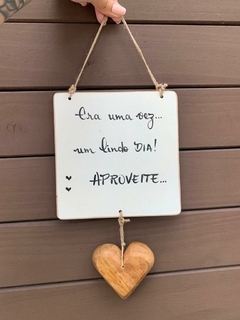 Era uma vez...
um lindo DIA!
APROVEITE...